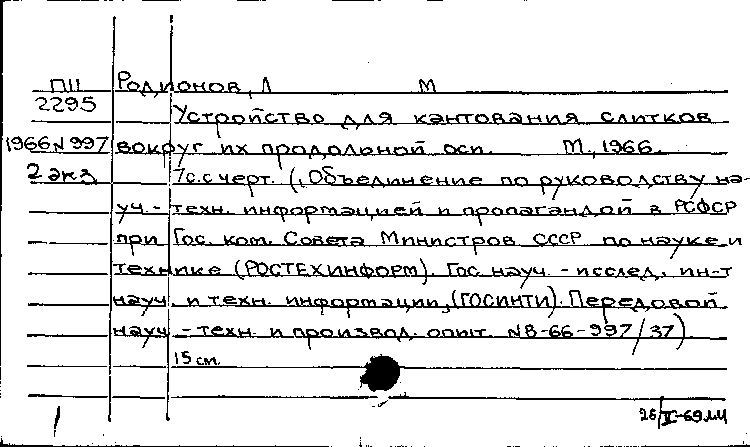 П11 Родионов, Л М
2295
Устройство для кантования слитков
1966 N 997 вокруг их продольной оси. М., 1966.
2 экз 7с. с черт. (Объединение по руководству на-
уч.- техн. информацией и пропагандой в РСФСР
при Гос. ком. Совета Министров СССР по науке и
технике (РОСТЕХИНФОРМ). Гос. науч. - исслед. ин-т
науч. и техн. информации, (ГОСИНТИ). Передовой
науч. - техн. и производ. опыт. N 8-66-997/37)
15 см.